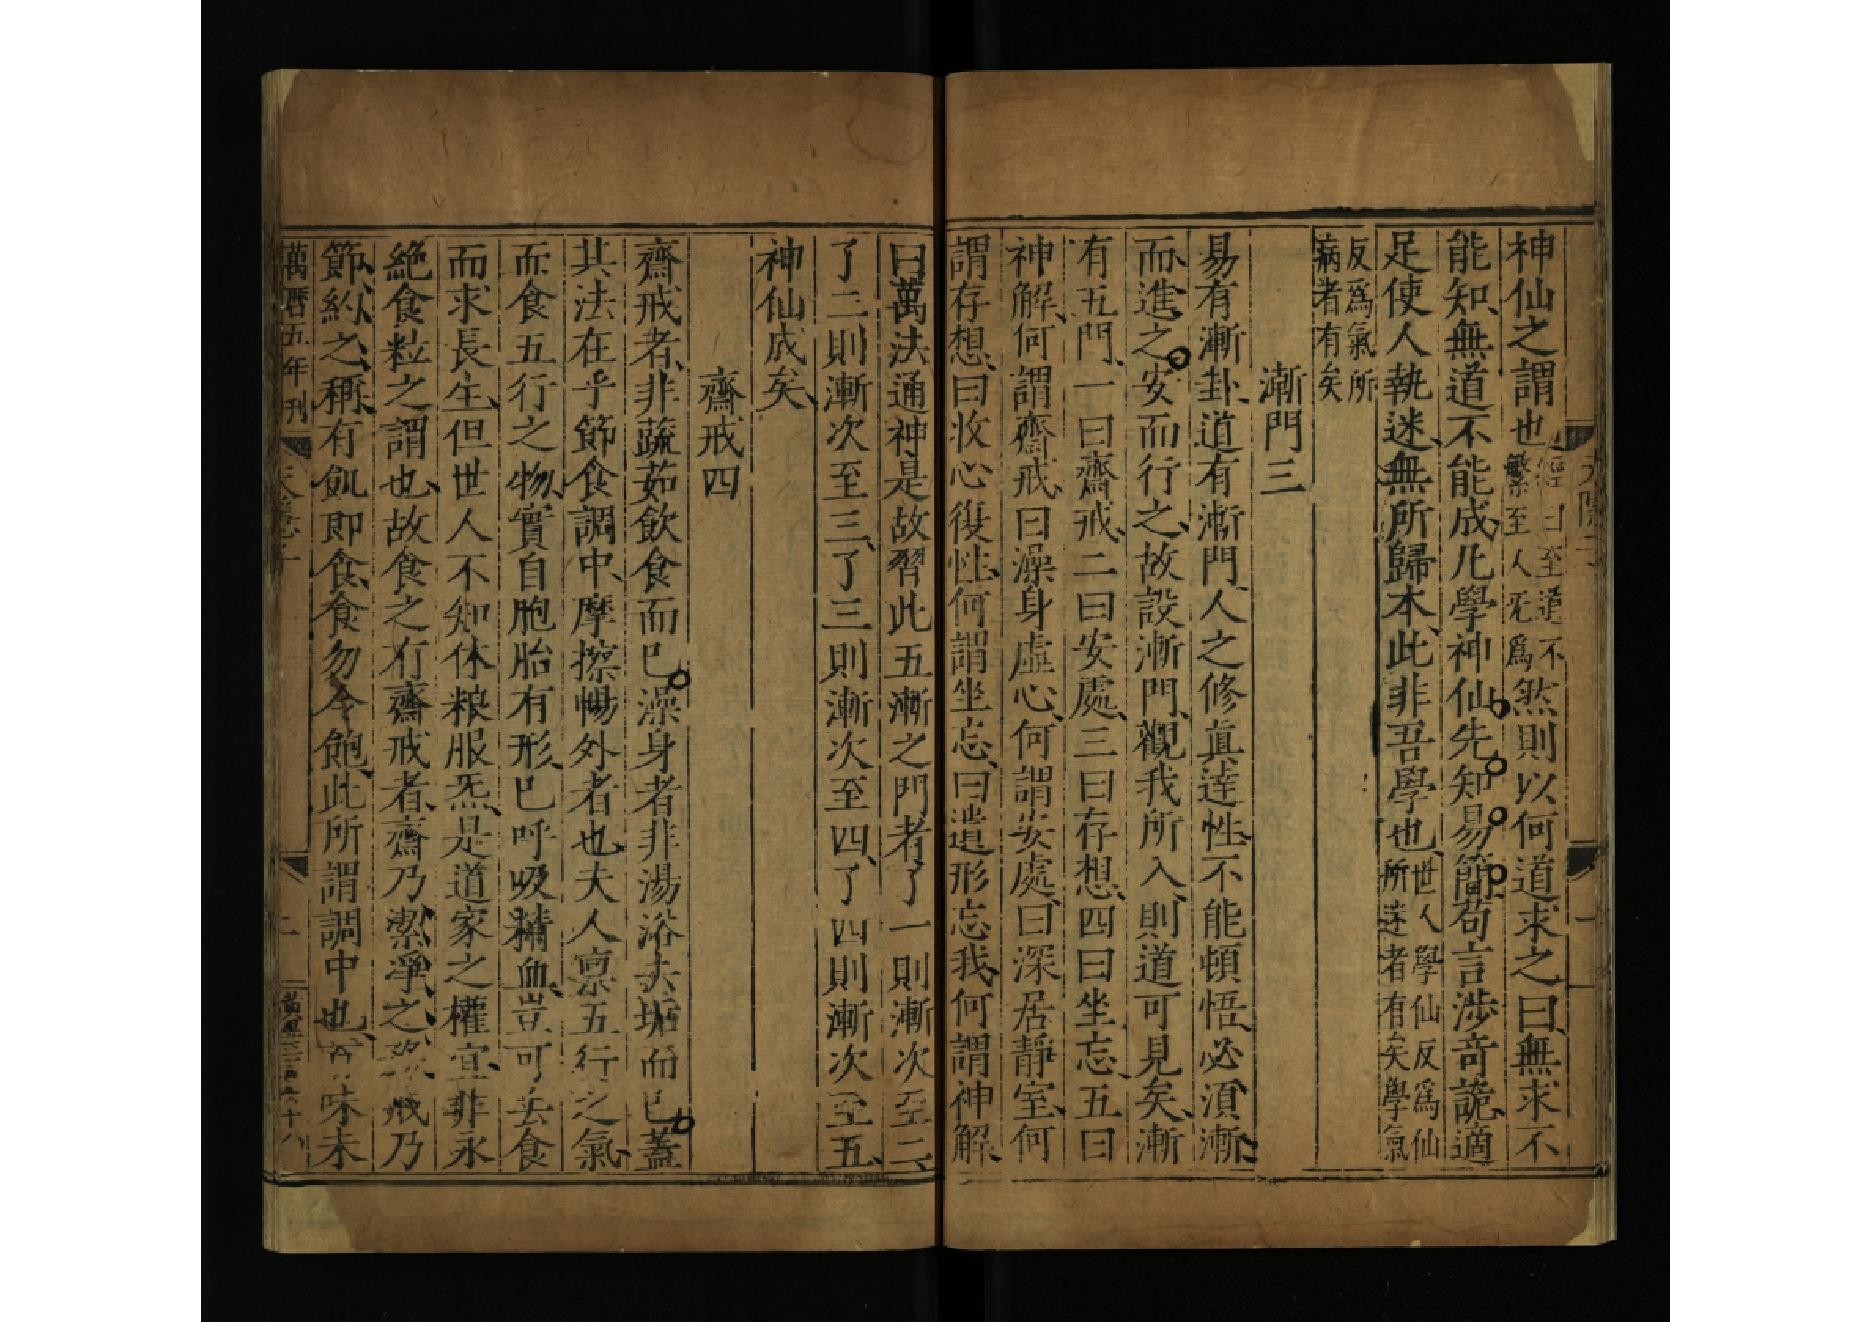 神仙之謂也經曰至道不繁至人旡爲然則以何道求之曰無求不
能知無道不能成凡學神仙先知易簡苟言涉奇詭適
足使人執迷無所歸本此非吾學也世人學仙反爲仙所迷者有矣學氣
反爲氣所病者有矣
漸門三
易有漸卦道有漸門人之修真達性不能頓悟必須漸
而進之安而行之故設漸門觀我所入則道可見矣漸
有五門一曰齋戒二曰安處三曰存想四曰坐忘五曰
神解何謂齋戒曰澡身虛心何謂安處曰深居靜室何
謂存想曰收心復性何謂坐忘曰遺形忘我何謂神解
曰萬法通神是故習此五漸之門者了一則漸次至二
了二則漸次至三了三則漸次至四了四則漸次至五
神仙成矣
齋戒四
齋戒者非蔬茹飲食而已澡身者非湯浴去垢而已蓋
其法在乎節食調中摩擦暢外者也夫人禀五行之氣
而食五行之物實自胞胎有形已呼吸精血豈可去食
而求長生但世人不知休粮服炁是道家之權宜非永
絶食粒之謂也故食之有齋戒者齋乃潔淨之務戒乃
節約之稱有飢即食食勿令飽此所謂調中也百味未
萬曆五年刊
天隱子
二